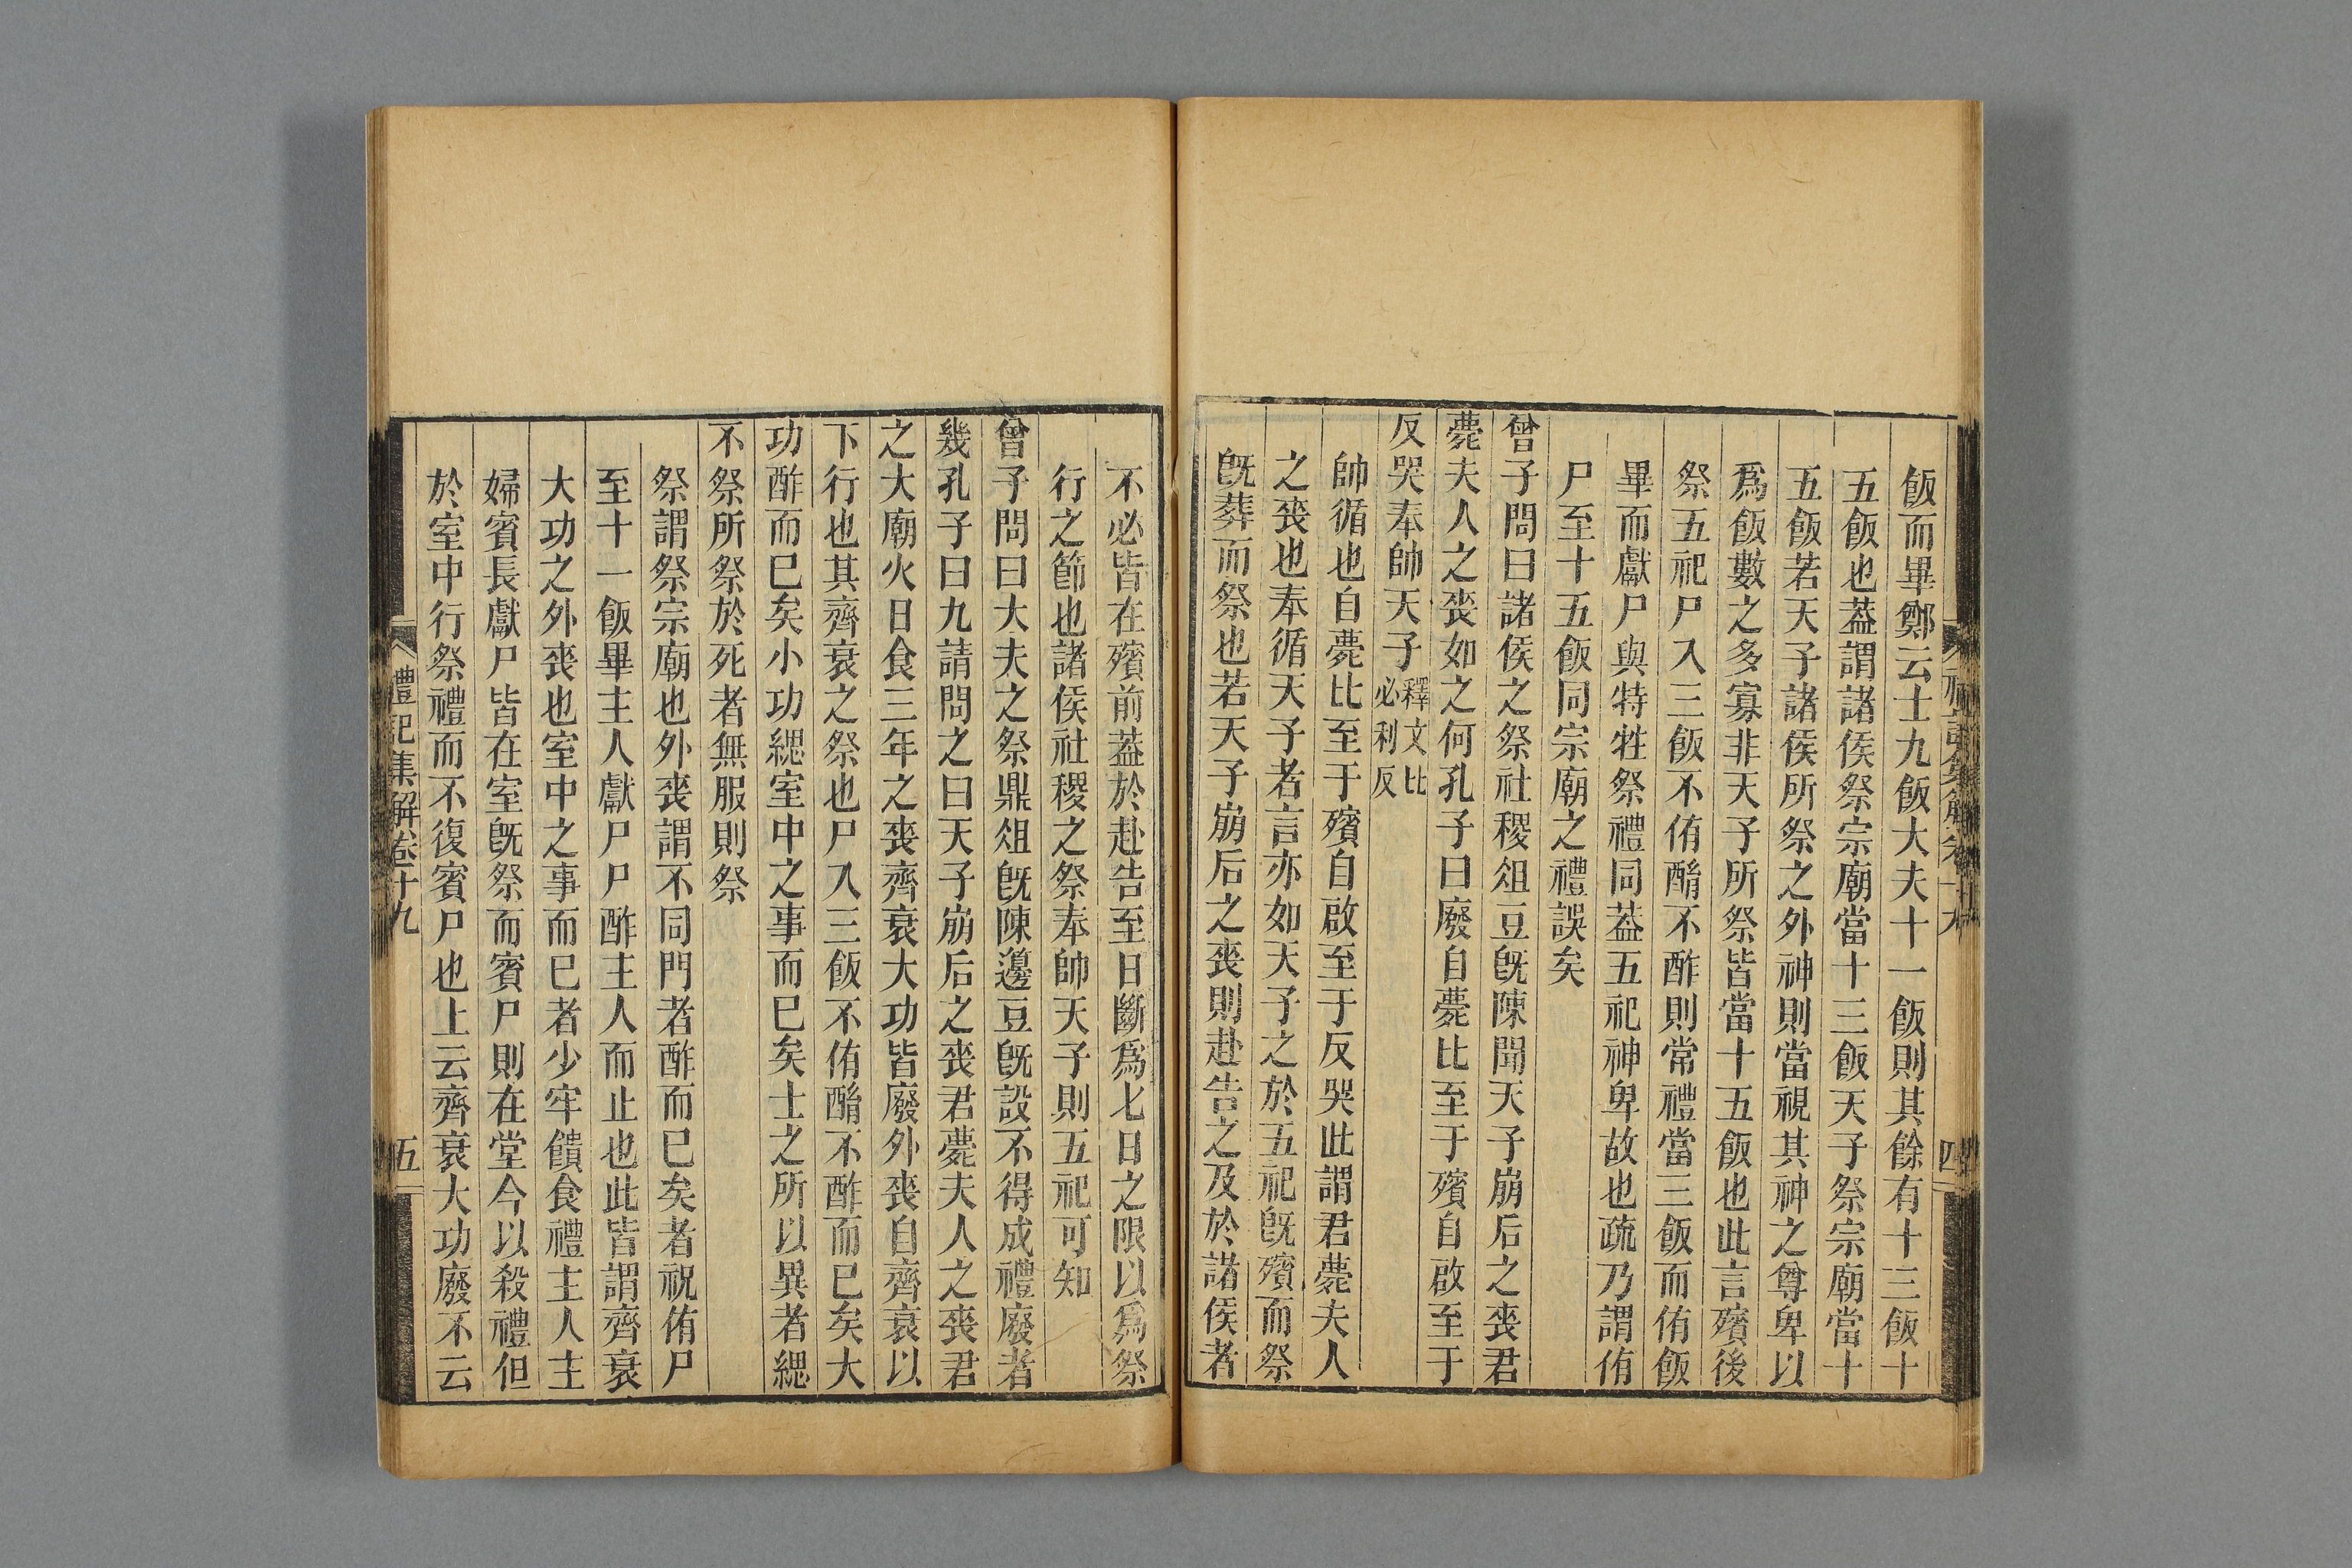 飯而畢鄭云士九飯大夫十一飯則其餘有十三飯十
五飯也葢謂諸侯祭宗廟當十三飯天子祭宗廟當十
五飯若天子諸侯所祭之外神則當視其神之尊卑以
爲飯數之多寡非天子所祭皆當十五飯也此言殯後
祭五祀尸入三飯不侑酳不酢則常禮當三飯而侑飯
畢而獻尸與特牲祭禮同葢五祀神卑故也疏乃謂侑
尸至十五飯同宗廟之禮誤矣
曾子問曰諸侯之祭社稷俎豆旣陳聞天子崩后之喪君
薨夫人之喪如之何孔子曰廢自薨比至于殯自啟至于
反哭奉帥天子釋文比必利反
帥循也自薨比至于殯自啟至于反哭此謂君薨夫人
之喪也奉循天子者言亦如天子之於五祀旣殯而祭
旣葬而祭也若天子崩后之喪則赴告之及於諸侯者
不必皆在殯前葢於赴告至日斷爲七日之限以爲祭
行之節也諸侯社稷之祭奉帥天子則五祀可知
曾子問曰大夫之祭鼎俎旣陳籩豆旣設不得成禮廢者
幾孔子曰九請問之曰天子崩后之喪君薨夫人之喪君
之大廟火日食三年之喪齊衰大功皆廢外喪自齊衰以
下行也其齊衰之祭也尸入三飯不侑酳不酢而已矣大
功酢而已矣小功緦室中之事而已矣士之所以異者緦
不祭所祭於死者無服則祭
祭謂祭宗廟也外喪謂不同門者酢而已矣者祝侑尸
至十一飯畢主人獻尸尸酢主人而止也此皆謂齊衰
大功之外喪也室中之事而已者少牢饋食禮主人主
婦賓長獻尸皆在室旣祭而賓尸則在堂今以殺禮但
於室中行祭禮而不復賓尸也上云齊衰大功廢不云
禮記集解卷十九
五
四